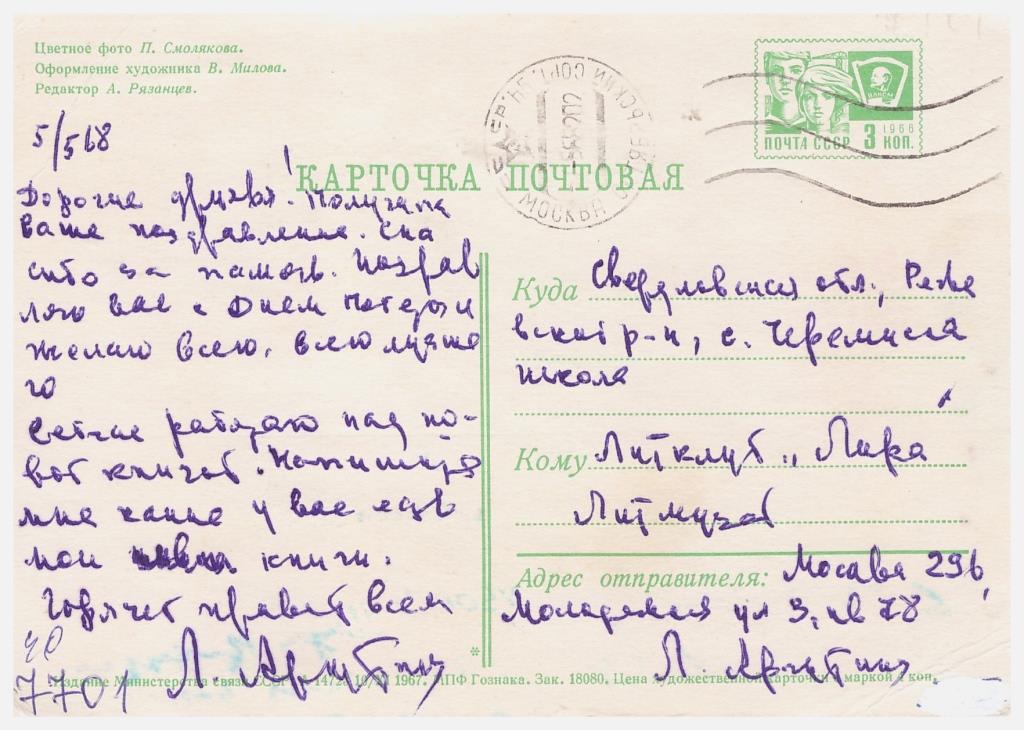 Цветное фото П. Смолякова.
Оформление художника В. Милова.
Редактор А. Рязанцев.
ПОЧТА СССР
1966
3 КОП.
ВЛКСМ
МОСКВА
5/5 68
КАРТОЧКА ПОЧТОВАЯ
Дорогие друзья! Получила
Ваше поздравление. Спа
сибо за память. Поздрав
ляю вас с Днем Победы и
желаю всего, всего лучше
го
Сейчас работаю над но-
вой книгой. Напишите
мне какие у вас есть
мои книги.
Горячий привет всем
Л.
Куда Свердловская обл., Реже
вский р-н, с. Черемисса
школа
Кому Литклуб „Лира"
Литмузей
Адрес отправителя: Москва 296,
Молодежная ул 3, кв 78
Л.
40
7701
Издание Министерства связи СССР. 1967. МПФ Гознака. Зак. 18080. Цена художественной карточки с маркой 4 коп.